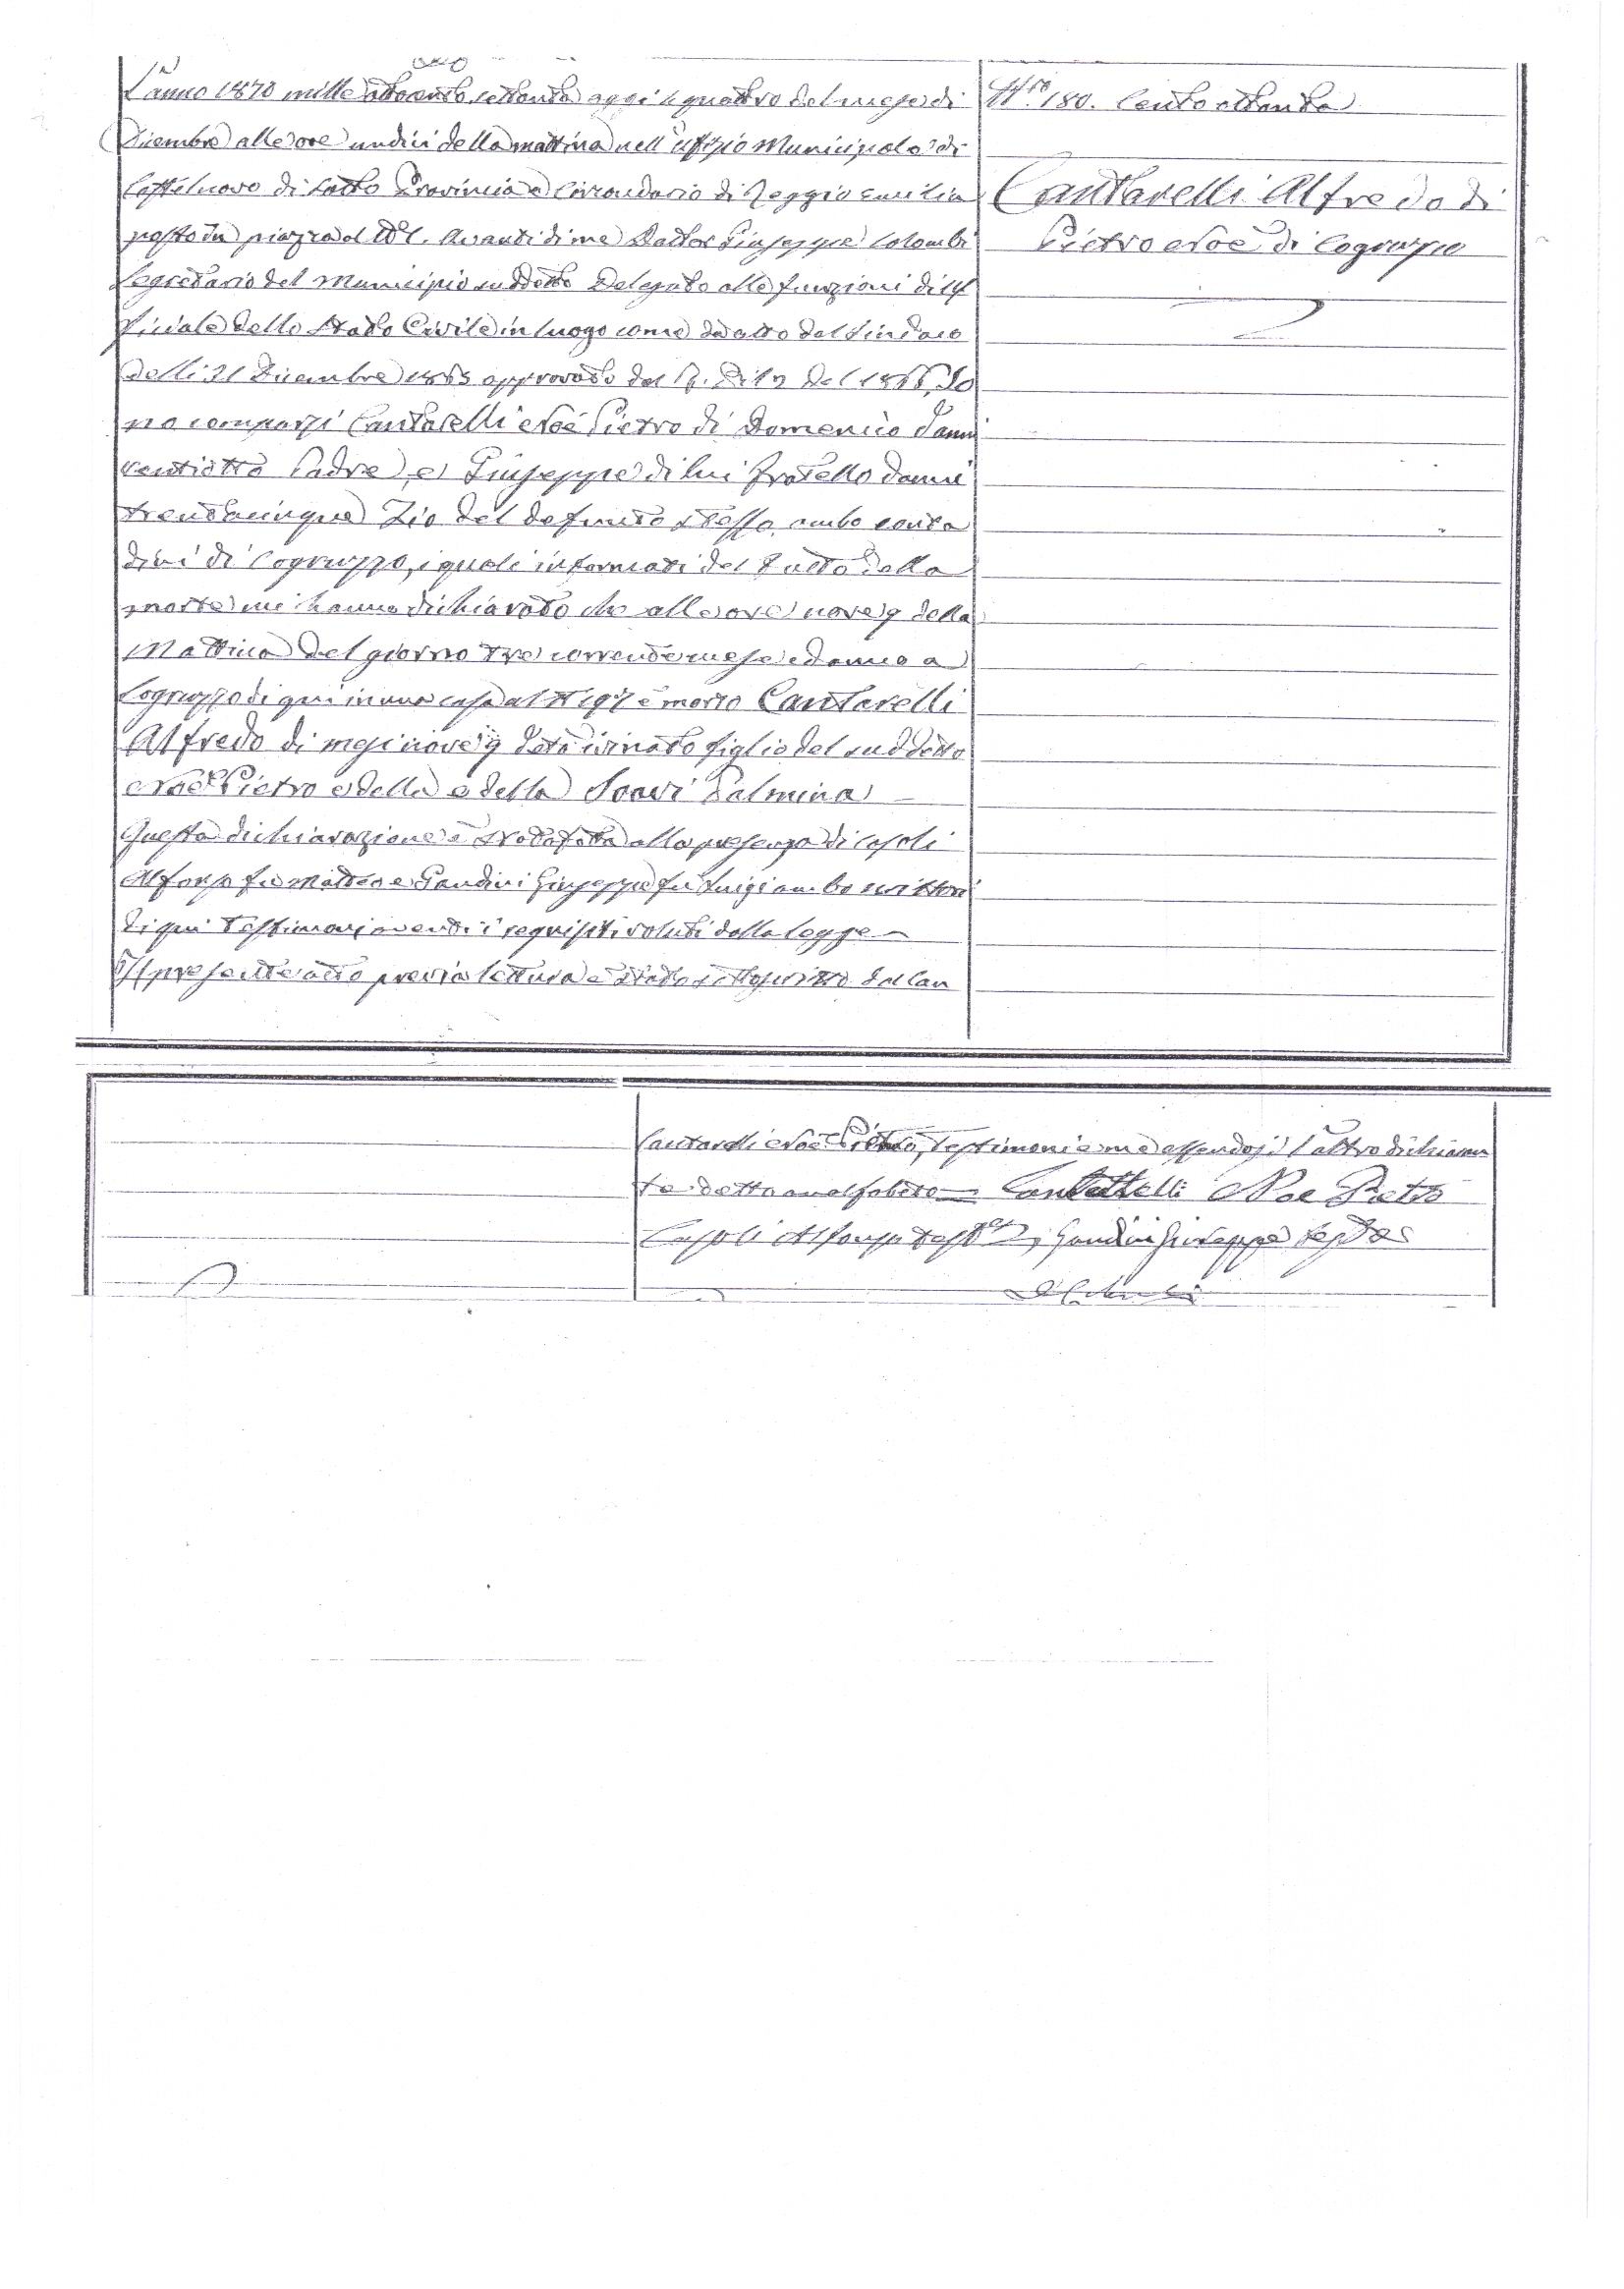 L'anno 1870 mille ottocento settanta oggi 4 quattro del mese di
Dicembre alle ore undici della mattina nell'Uffizio Municipale di
Castelnovo di Sotto Provincia e Circondario di Reggio Emilia
posto in piazza al N° 1. Avanti di me Dottor Giuseppe Colombi
Segretario del Municipio suddetto Delegato alle funzioni di Uf
ficiale dello Stato Civile in luogo come da atto del Sindaco
delli 31 Dicembre 1865 approvato dal del 1866, So
no comparsi Cantarelli Noè Pietro di Domenico d'anni
ventiotto Padre, e Giuseppe di lui fratello d'anni
trentacinque Zio del defunto stesso, ambo conta
dini di Cogruzzo, i quali informati del fatto della
morte mi hanno dichiarato che alle ore nove 9 della
Mattina del giorno tre corrente mese ed anno a
Cogruzzo di qui in una casa al N 197 è morto Cantarelli
Alfredo di mesi nove 9 d'età ivi nato figlio del suddetto
Noè Pietro e della e della Soavi Palmina
Questa dichiarazione è stata fatta alla presenza di Casoli
Alfonso fu Matteo e Gandini Giuseppe fu Luigi ambo scrittori
di qui testimoni aventi i requisiti voluti dalla legge
Il presente atto previa lettura è stato sottoscritto dal Can
N.ro 180. Cento ottanta
Cantarelli Alfredo di
Pietro Noè di Cogruzzo
Cantarelli Noè Pietro, testimoni e me essendosi l'altro dichiaran
te detto analfabeto Cantarelli Noe Pietro
Casoli Alfonso Gandini Giuseppe
Colombi